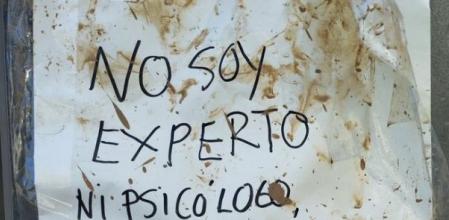 NO SOY
EXPERTO
NI PSICÓLOGO,